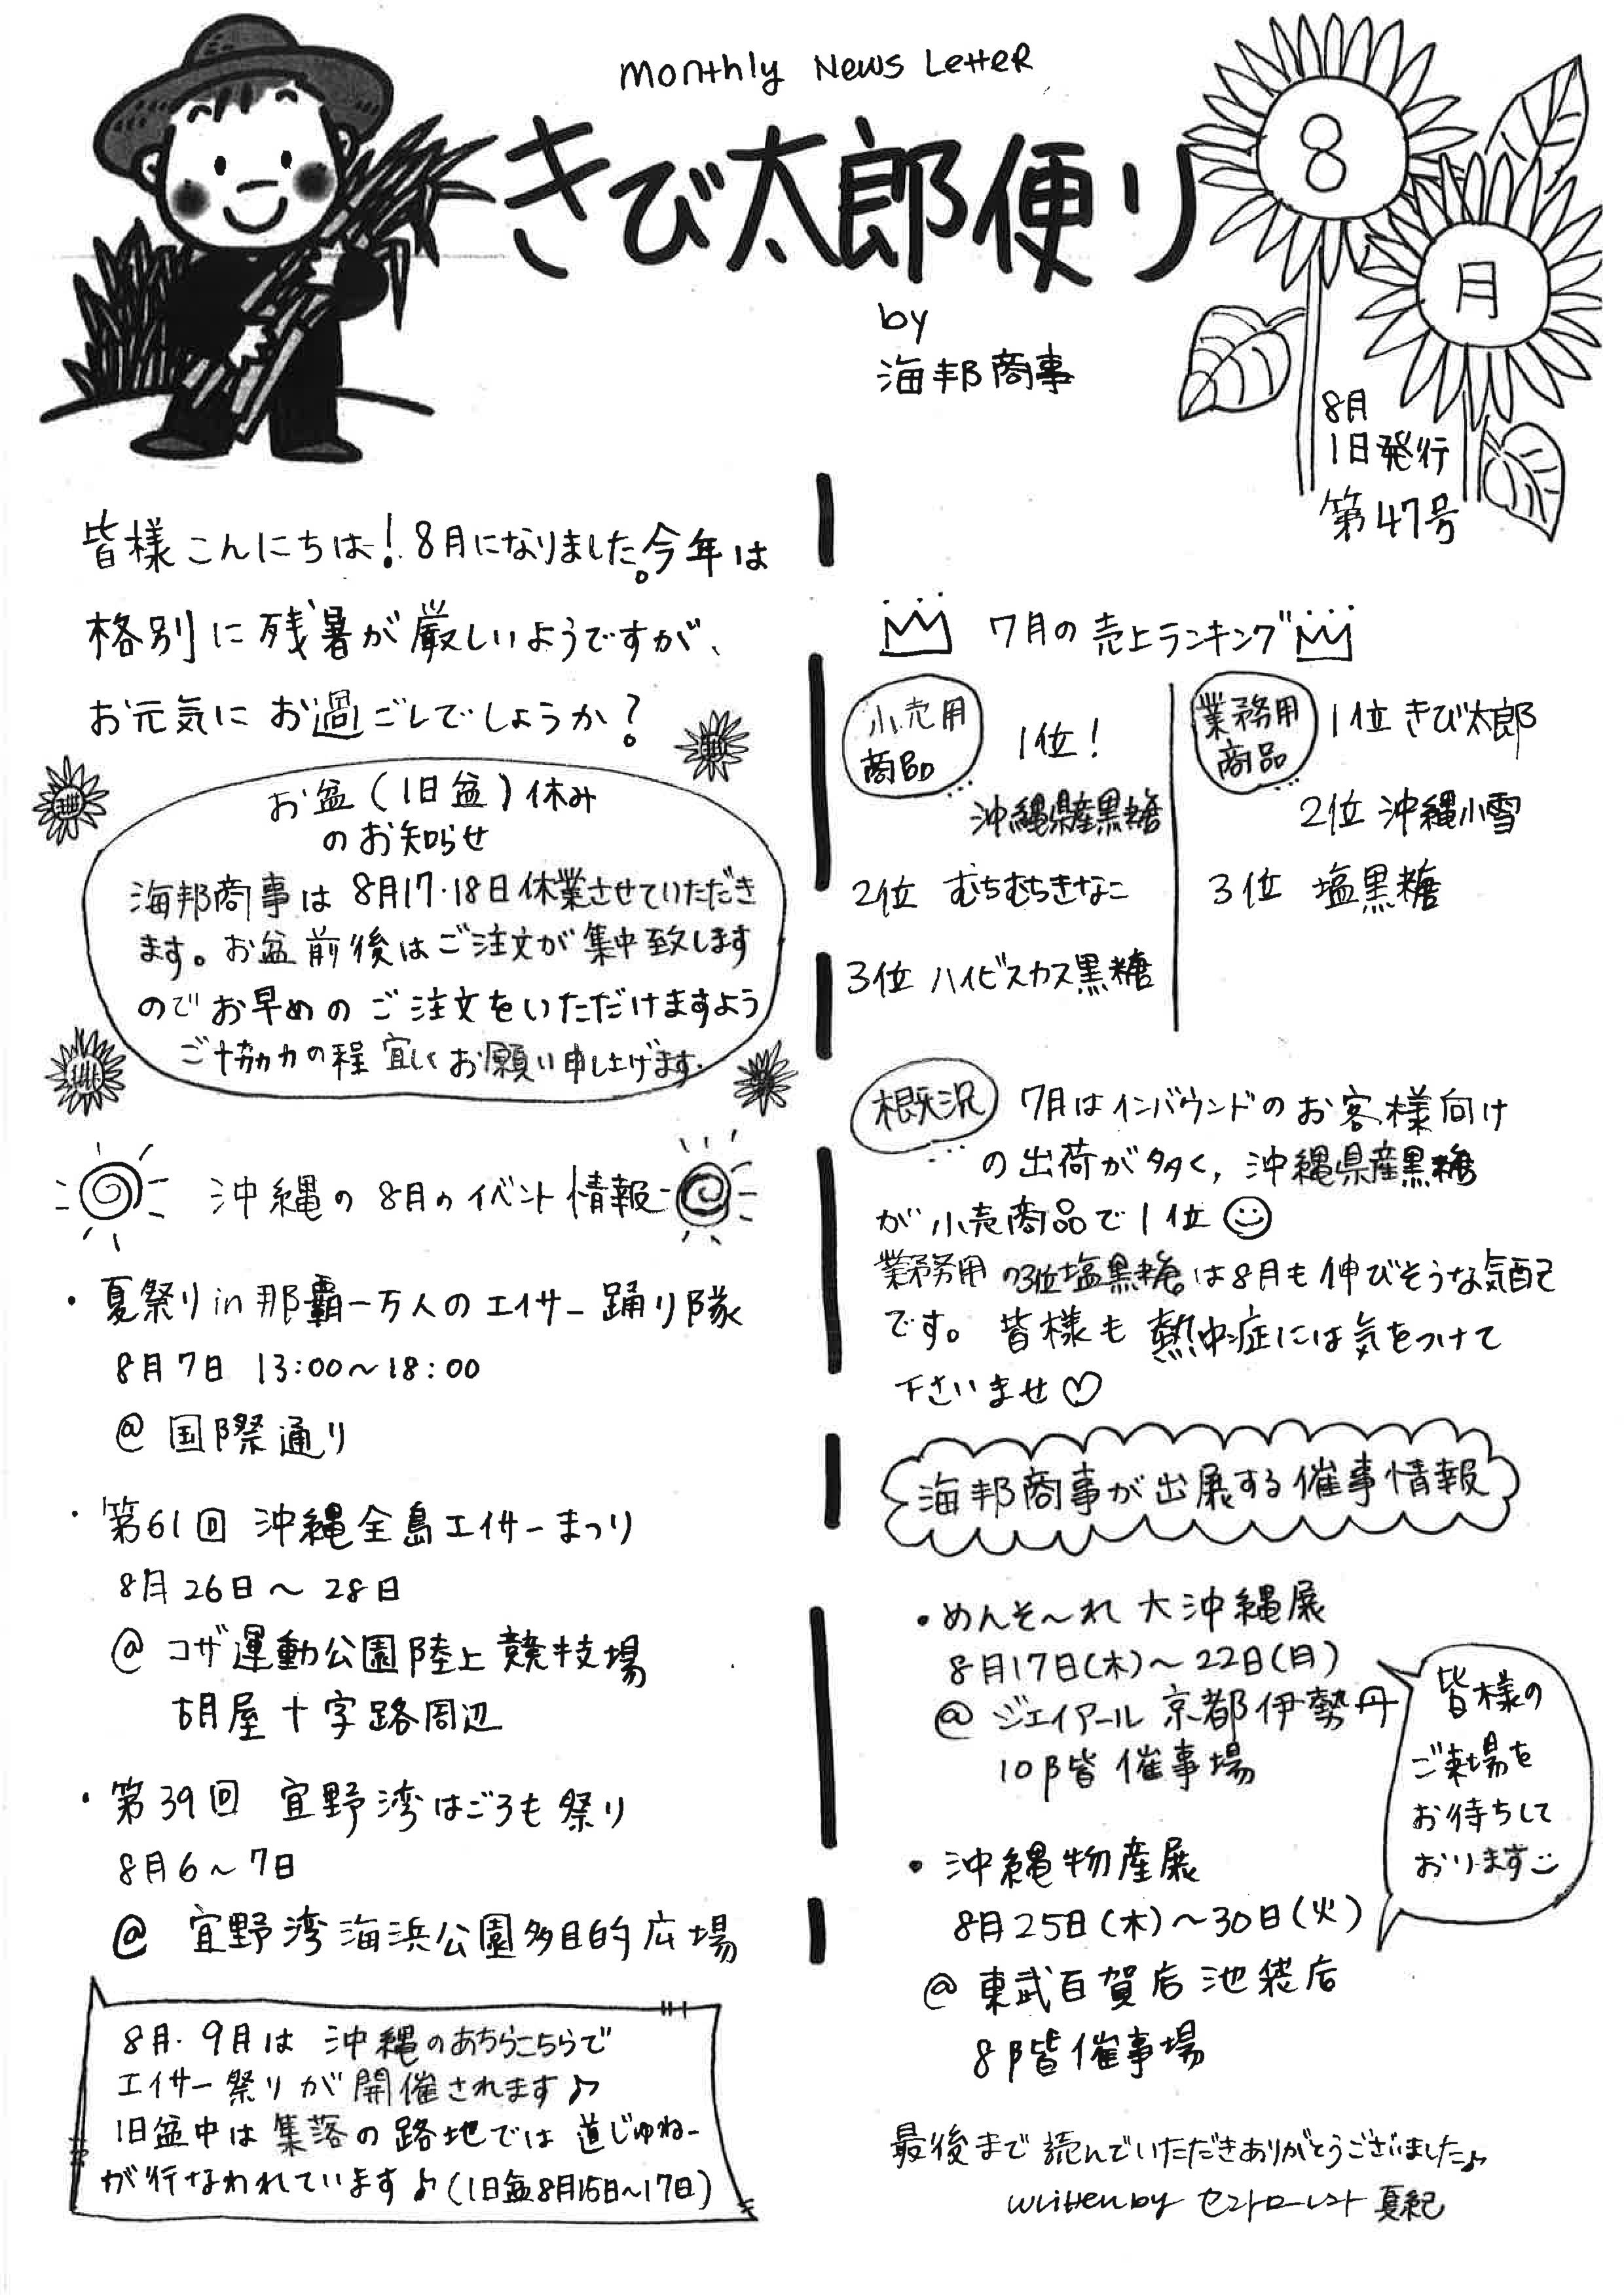 Monthly News Letter
きび太郎便り
by
海邦商事
8
月
8月
1日発行
第47号
皆様こんにちは!8月になりました。今年は
格別に残暑が厳しいようですが、
お元気にお過ごしでしょうか?
お盆(旧盆)休み
のお知らせ
海邦商事は8月17・18日休業させていただき
ます。お盆前後はご注文が集中致します
のでお早めのご注文をいただけますよう
ご協力の程宜しくお願い申し上げます.
沖縄の8月のイベント情報
・夏祭り in 那覇一万人のエイサー踊り隊
8月7日 13:00〜18:00
@ 国際通り
・第61回 沖縄全島エイサーまつり
8月26日〜28日
@ コザ運動公園陸上競技場
胡屋十字路周辺
・第39回 宜野湾はごろも祭り
8月6〜7日
@ 宜野湾海浜公園多目的広場
8月・9月は沖縄のあちらこちらで
エイサー祭りが開催されます♪
旧盆中は集落の路地では道じゅねー
が行なわれています♪(旧盆8月15日〜17日)
7月の売上ランキング
小売用
商品
1位!
沖縄県産黒糖
2位 むちむちきなこ
3位 ハイビスカス黒糖
業務用
商品
1位 きび太郎
2位 沖縄小雪
3位 塩黒糖
概況 7月はインバウンドのお客様向け
の出荷が多く,沖縄県産黒糖
が小売商品で1位☺
業務用の3位塩黒糖は8月も伸びそうな気配
です。皆様も熱中症には気をつけて
下さいませ♡
海邦商事が出展する催事情報
・めんそ〜れ大沖縄展
8月17日(木)〜22日(月)
@ ジェイアール京都伊勢丹
10階催事場
・沖縄物産展
8月25日(木)〜30日(火)
@ 東武百貨店池袋店
8階催事場
皆様の
ご来場を
お待ちして
おります
最後まで読んでいただきありがとうございました♪
written by セストローレスト 夏紀